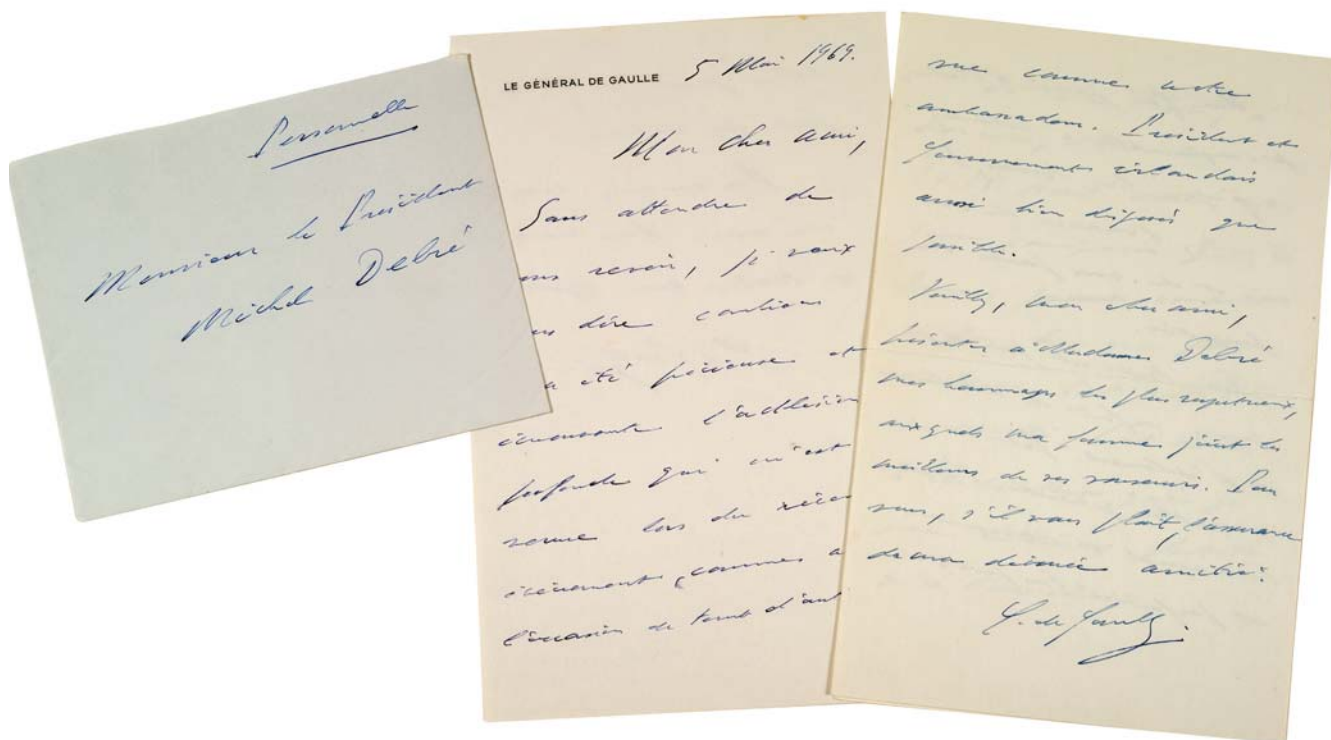 Personnelle
Monsieur le Président
Michel Debré
LE GÉNÉRAL DE GAULLE
5 Mai 1969.
Mon cher ami,
Sans attendre de
revoir, je veux
dire combien
été précieuse et
émouvante l'adhésion
profonde qui m'est
venue lors du
événement, comme à
l'occasion de tant d'aut
vue comme notre
ambassadeur. Président et
Gouvernement irlandais
aussi bien disposés que
possible.
Veuillez, mon cher ami,
présenter à Madame Debré
mes hommages les plus respectueux,
auxquels ma femme joint les
meilleurs de ses souvenirs. Pour
vous, s'il vous plaît, l'assurance
de ma dévouée amitié.
C. de Gaulle.